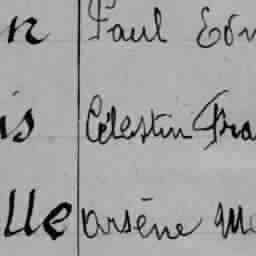 n Paul Edm
is Célestin Fra
lle Arsène Me